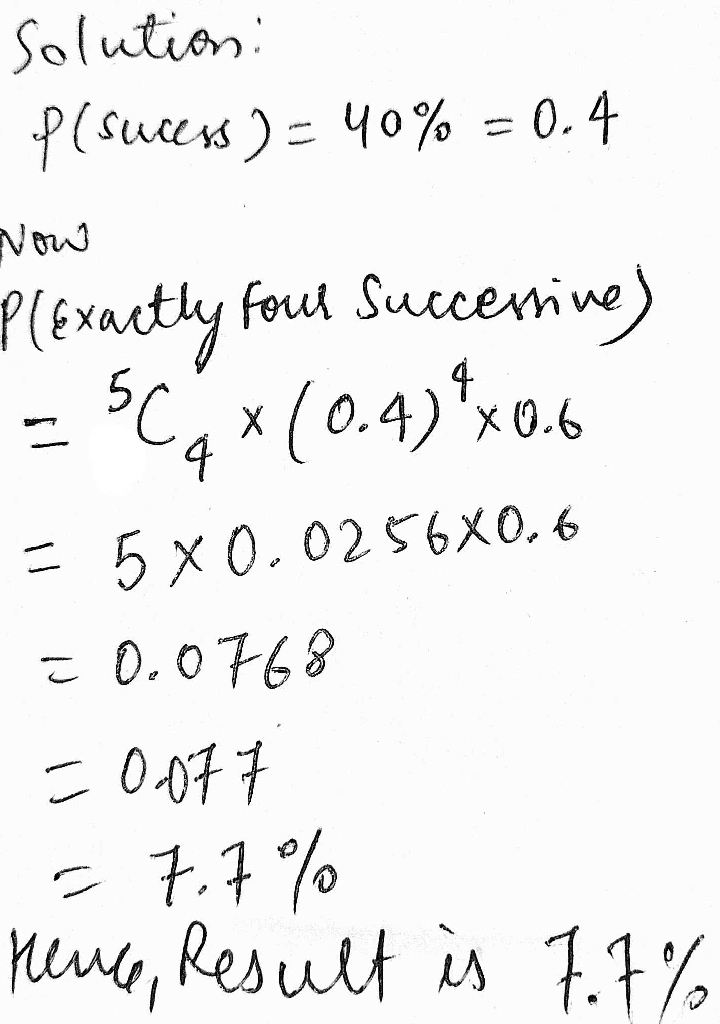 Solution:
P(sucess) = 40% = 0.4
Now
P(Exactly four Successive)
= ⁵C₄ × (0.4)⁴ × 0.6
= 5 × 0.0256 × 0.6
= 0.0768
= 0.077
= 7.7 %
Hence, Result is 7.7%